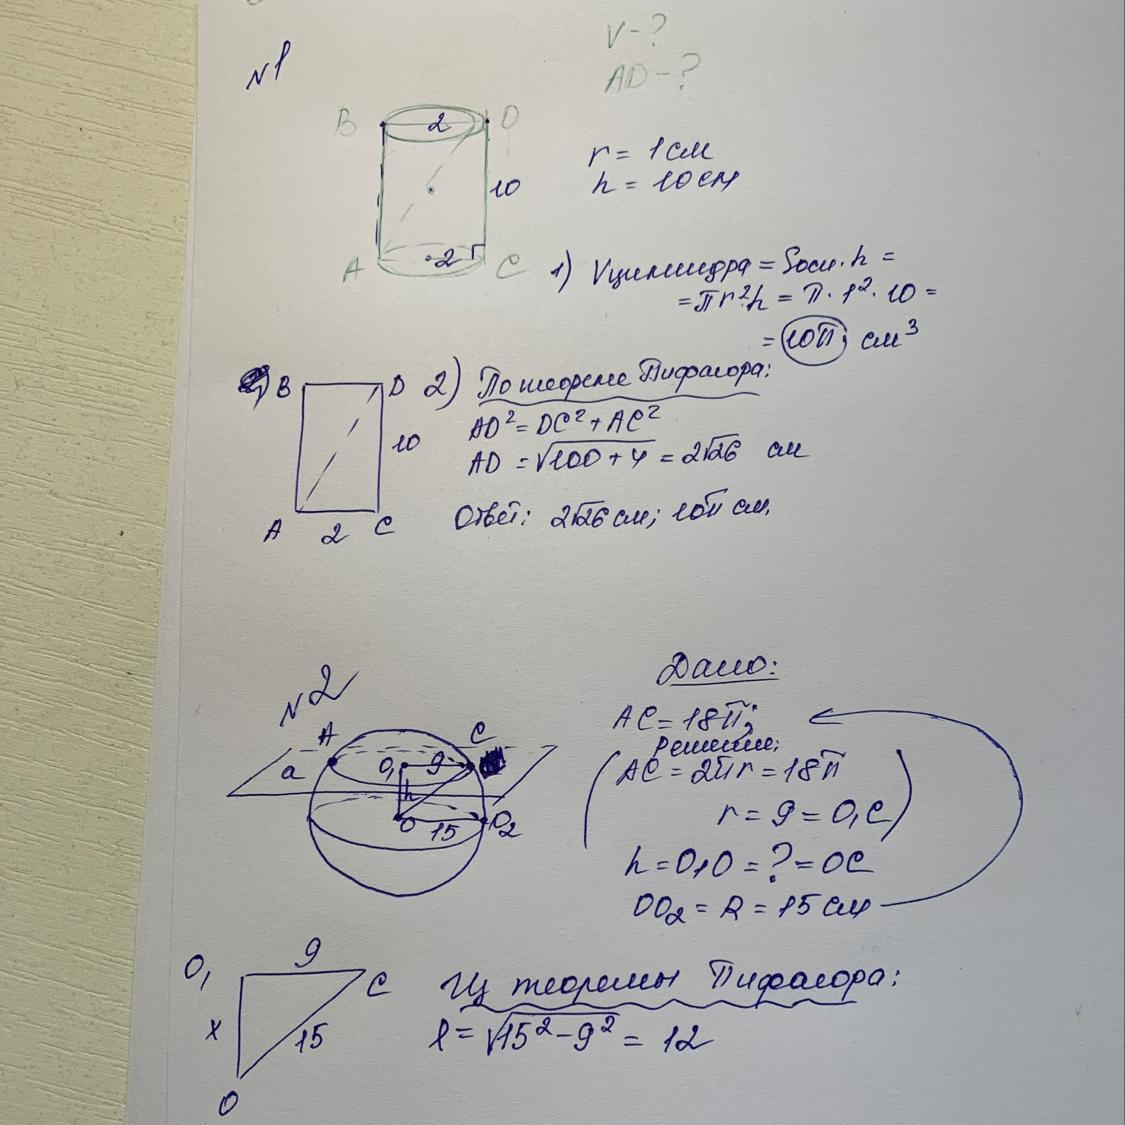 N1
V-?
AD-?
B 2 D
r = 1см
h = 10см
10
A 2 C
1) Vцилиндра = Sосн.h =
= πr²h = π · 1² · 10 =
= 10π; см³
B D
10
A 2 C
2) По теореме Пифагора:
AD² = DC² + AC²
AD = √100 + 4 = 2√26 см
Ответ: 2√26 см; 10π см.
N2
A C
a O₁ 9
h
O 15 O₂
Дано:
AC = 18π;
решение;
(AC = 2πr = 18π
r = 9 = O₁C)
h = O₁O = ? = OC
OO₂ = R = 15 см
O₁ 9 C
x 15
O
Из теоремы Пифагора:
x = √15² - 9² = 12